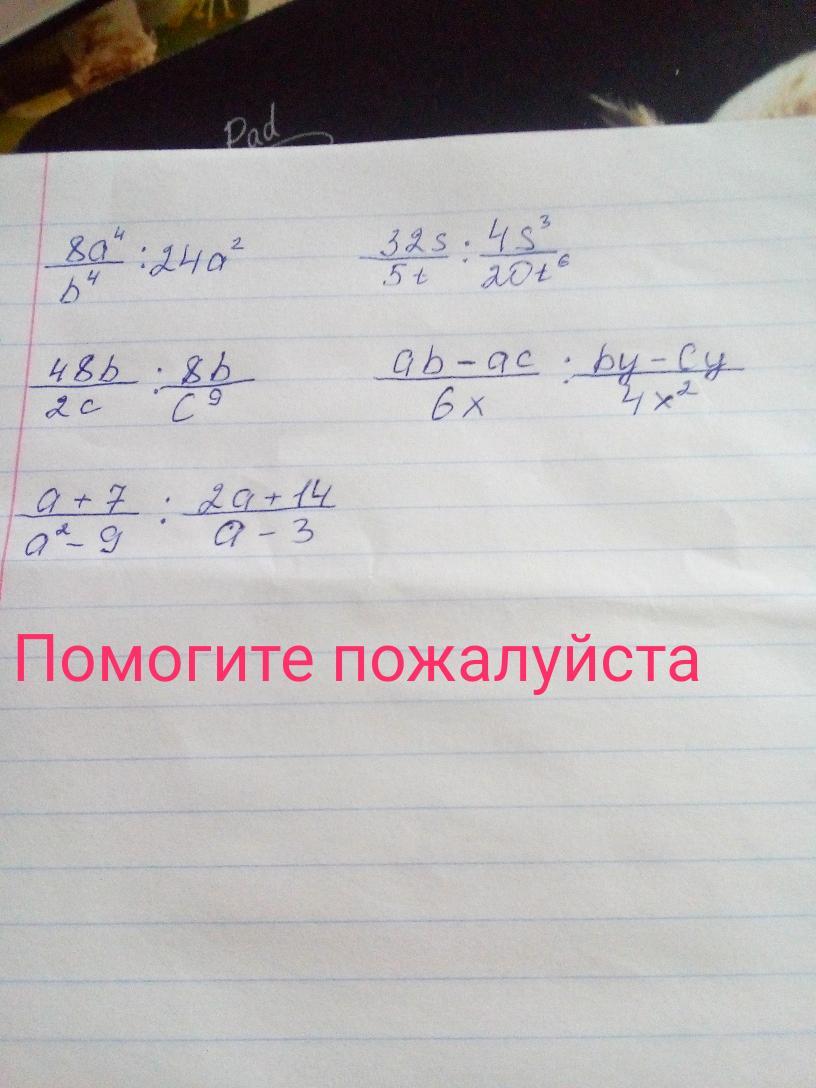 Pad
8a⁴/b⁴ : 24a²
32s/5t : 4s³/20t⁶
48b/2c : 8b/c⁹
ab-ac/6x : by-cy/4x²
a+7/a²-9 : 2a+14/a-3
Помогите пожалуйста